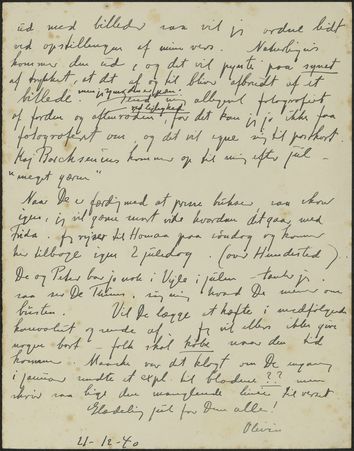 ud med billeder saa vil jeg ordne lidt
ved opstillingen af mine vers. Naturligvis
kommer den ud, og det vil pynte paa synet
af trykket, at det af og til bliver afbrudt af et
billede.
alligevel fotograferet
af jorden og for det kan jo ikke faa
fotograferet om, og det vil egne sig til postkort.
Kaj Borchsenius kommer op til mig efter jul –
"meget gerne"
Naar De er færdig med at prøve bukser saa skriv
igen, jeg vil gerne snart vide hvordan det gaar med
Frida. Jeg rejser til Homaa paa søndag og kommer
her tilbage igen 2 juledag. (over Hundested).
De og Peter har jo nok i Vejle i julen tænker jeg.
saa ser De Thium. sig mig hvad De mener om
büsten. Vil De lægge et hæfte i medfølgende
konvolut og sende af. Jeg vil ellers ikke give
nogen bort – folk skal købe naar den tid
kommer. Maaske var det klogt om De engang
i januar sendte et expl. til bladene ?? men
skriv saa lige den manglende linie til verset
Glædelig jul for Dem alle!
Oliver
21-12-40